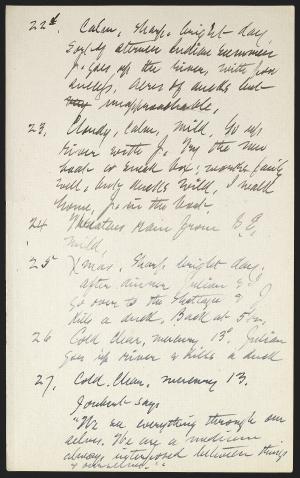 22d. Calm, sharp, bright day,
sort of sterner Indian summer
J. goes up the river, with poor
success, Acres of ducks but
unapproachable,
23, Cloudy, calm, mild, Go up
river with J. Try the new
boat; works fairly
well, but ducks wild, I walk
home, J. in the boat.
24 Threatens rain from S.E,
mild,
25" Xmas. Sharp, bright day;
after dinner Julian & I
go over to the J.
kills a duck. Back at 5 P.m.
26 Cold clear, mercury 13°. Julian
goes up river & kills a duck
27, Cold. Clear, mercury 13.
Joubert says
"We see everything through our
selves. We are a medium
always interposed between things
& ourselves."